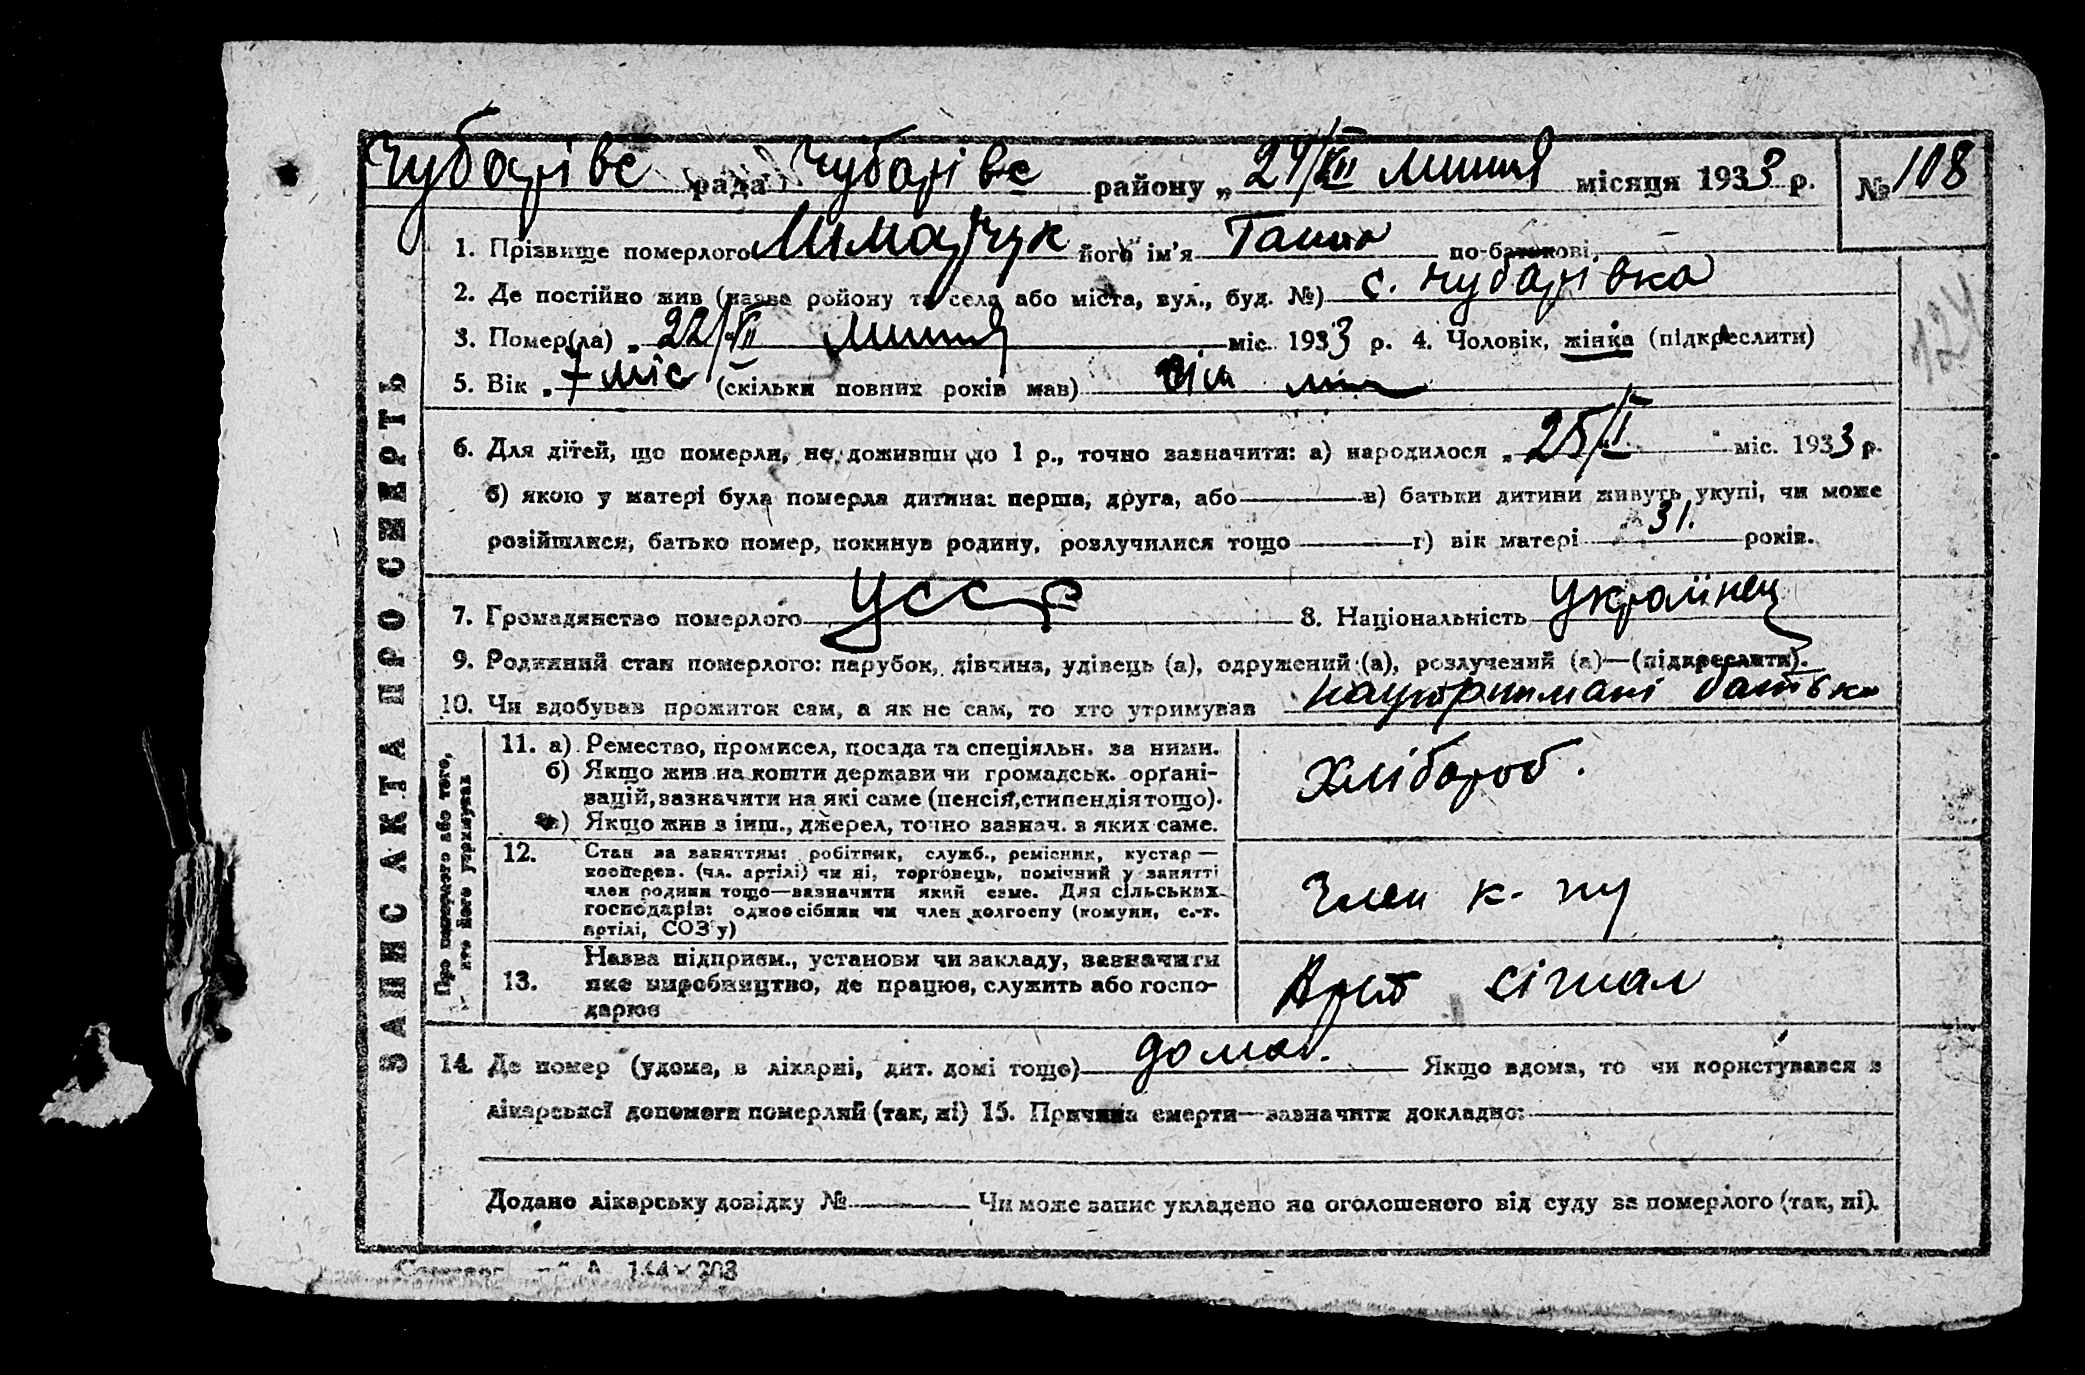 Чубарівс рада Чубарівс району „ 24/VII липня місяця 1933 р. № 108
ЗАПИС АКТА ПРО СМЕРТЬ
1. Прізвище померлого його ім'я Ганна по-батькові —
2. Де постійно жив (назва району та села або міста, вул., буд. №) с. Чубарівка
3. Помер(ла) „ 22/VII липня міс. 1933 р. 4. Чоловік, жінка (підкреслити)
5. Вік „ 7 міс (скільки повних років мав) сім міс
124
6. Для дітей, що померли, не доживши до 1 р., точно зазначити: а) народилося „ 25/II міс. 1933 р.
б) якою у матері була померла дитина: перша, друга, або в) батьки дитини живуть укупі, чи може
розійшлися, батько помер, покинув родину, розлучилися тощо г) вік матері 31. років.
7. Громадянство померлого УССР 8. Національність Українец
9. Родинний стан померлого: парубок, дівчина, удівець (а), одружений (а), розлучений (а)—(підкреслити).
10. Чи здобував прожиток сам, а як не сам, то хто утримував наутриманні батька
Про померлого або того, хто його утримував
11. а) Ремество, промисел, посада та спеціяльн. за ними.
б) Якщо жив на кошти держави чи громадськ. орґані-
зацій, зазначити на які саме (пенсія, стипендія тощо).
в) Якщо жив з інш., джерел, точно зазнач. з яких саме.
Хлібороб.
12. Стан за заняттям: робітник, служб., ремісник, кустар —
кооперов. (чл. артілі) чи ні, торговець, помічний у занятті
член родини тощо—зазначити який саме. Для сільських
господарів: одноосібник чи член колгоспу (комуни, с.-г.
артілі, СОЗ'у)
Член к-гу
13. Назва підприєм., установи чи закладу, зазначити
яке виробництво, де працює, служить або госпо-
дарює
Арт сігнал
14. Де помер (удома, в лікарні, дит. домі тощо) дома. Якщо вдома, то чи користувався з
лікарської допомоги померлий (так, ні) 15. Причина смерти—зазначити докладно:
Додано лікарську довідку № Чи може запис укладено на оголошеного від суду за померлого (так, ні).
144×203